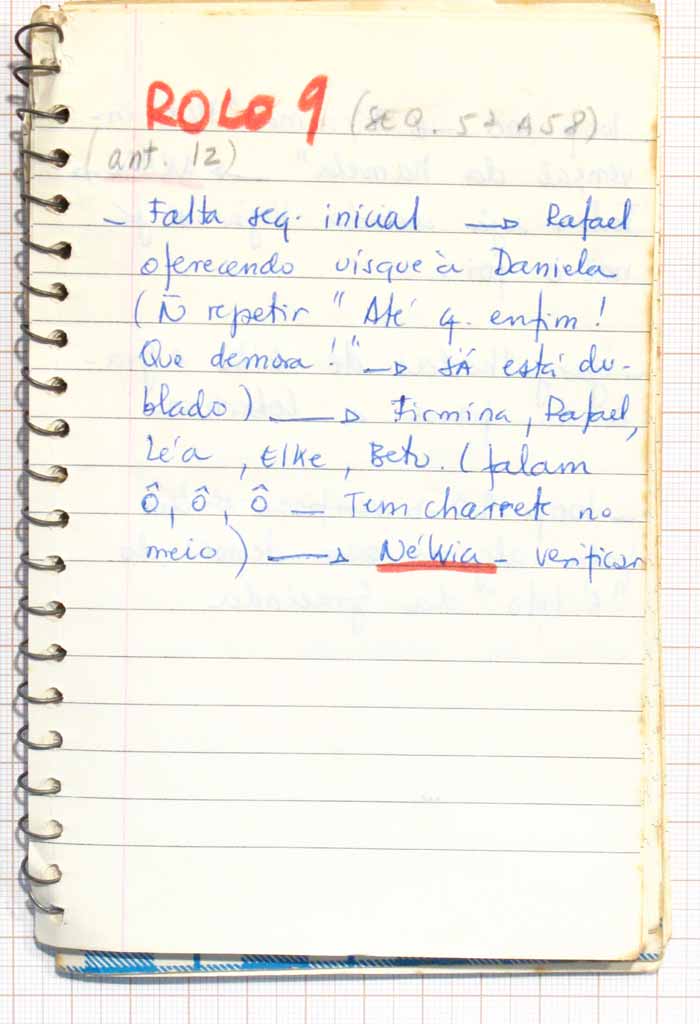 ROLO 9 (SEQ. 52 A 58)
(ant. 12)
- Falta seq. inicial → Rafael
oferecendo uisque à Daniela
(Ñ repetir "Até q. enfim!
Que demora!" → JÁ está du-
blado) → Firmina, Rafael,
Léa, Elke, Beto. (falam
Ô, Ô, Ô — Tem charrete no
meio) → NéWia - verificar